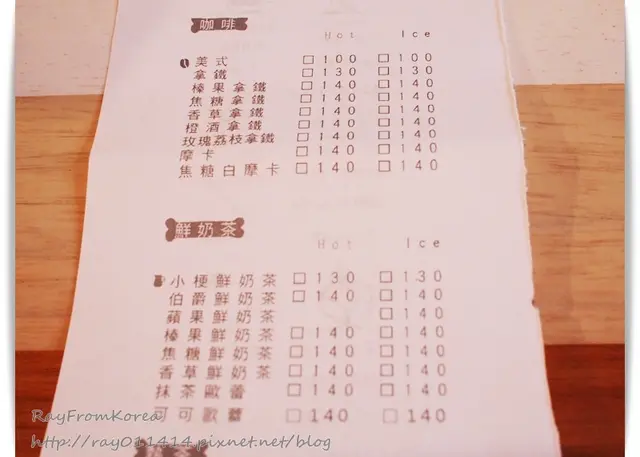 咖啡
Hot Ice
美式 □100 □100
拿鐵 □130 □130
榛果拿鐵 □140 □140
焦糖拿鐵 □140 □140
香草拿鐵 □140 □140
橙酒拿鐵 □140 □140
玫瑰荔枝拿鐵 □140 □140
摩卡 □140 □140
焦糖白摩卡 □140 □140
鮮奶茶
Hot Ice
小梗鮮奶茶 □130 □130
伯爵鮮奶茶 □140 □140
蘋果鮮奶茶 □140
榛果鮮奶茶 □140 □140
焦糖鮮奶茶 □140 □140
香草鮮奶茶 □140 □140
抹茶歐蕾 □140 □140
可可歐蕾 □140 □140
RayFromKorea
http://ray011414.pixnet.net/blog